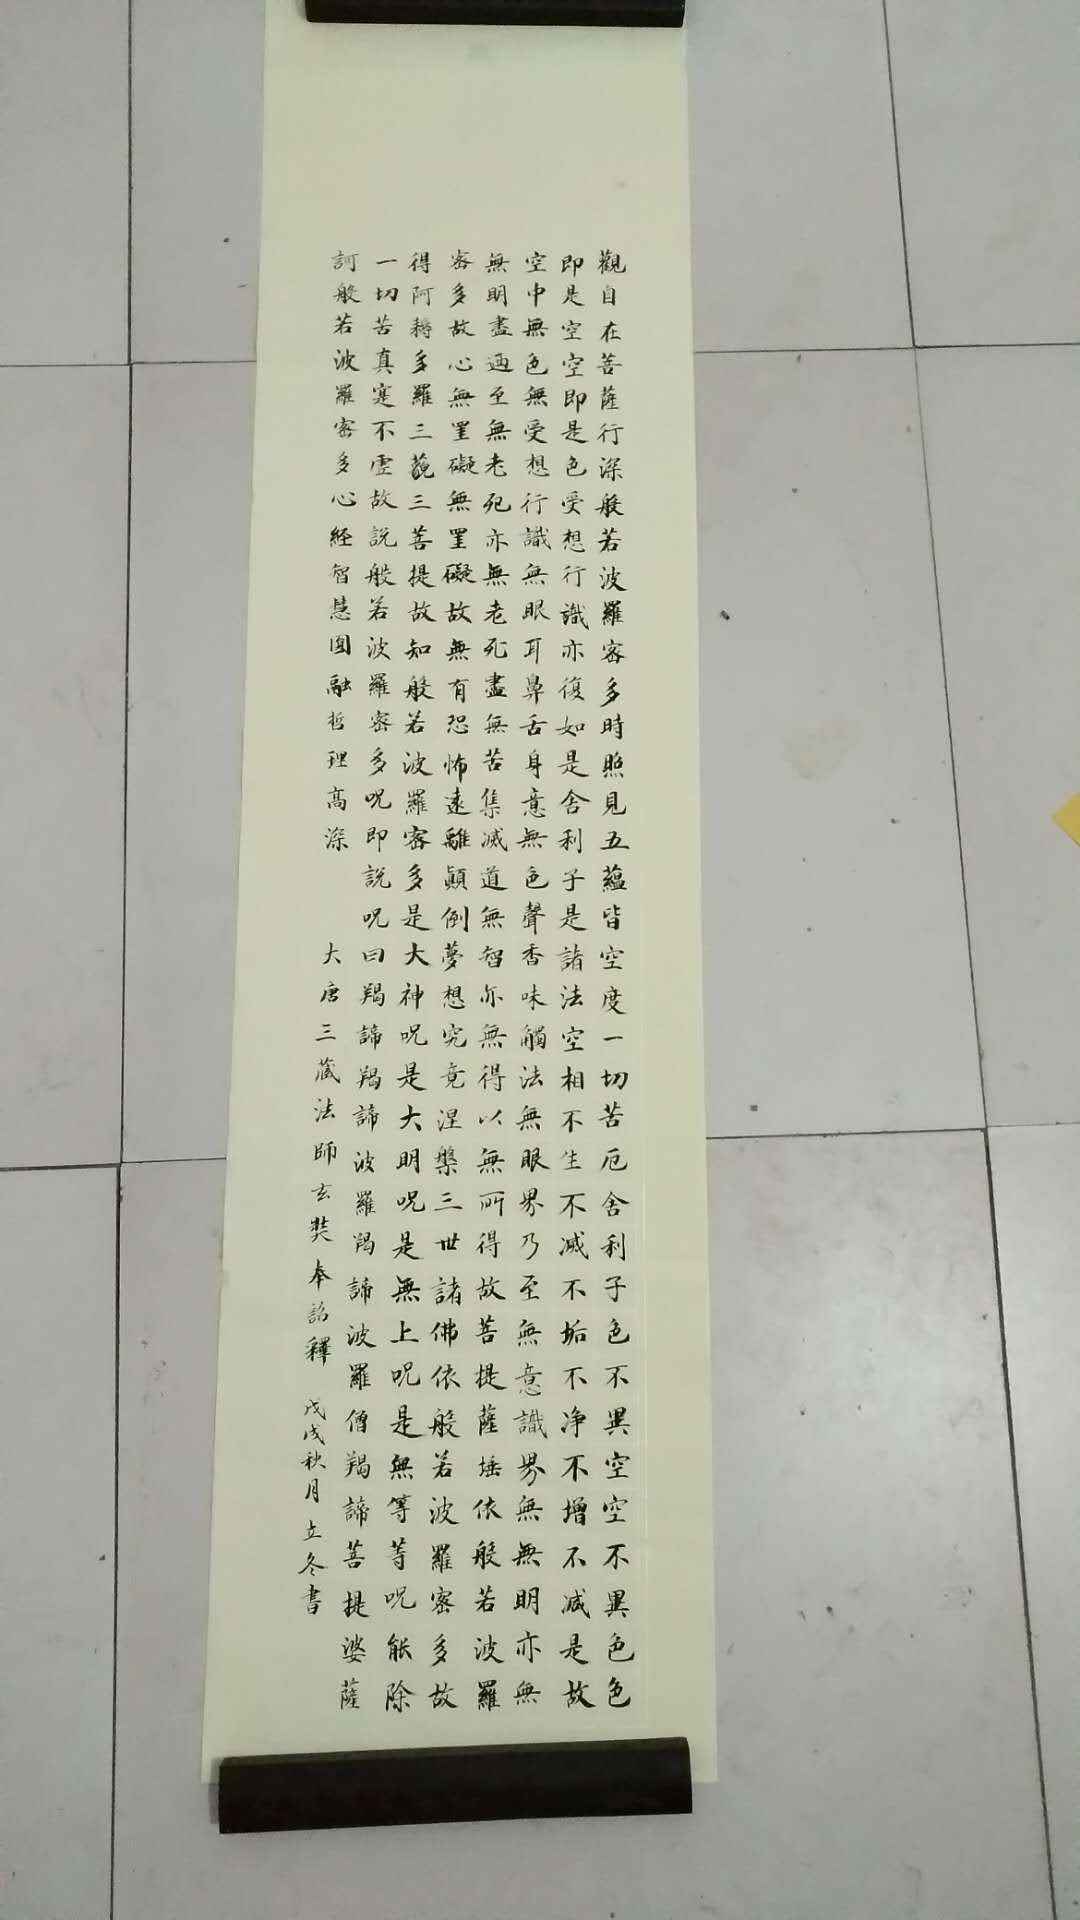 觀自在菩薩行深般若波羅密多時照見五蘊皆空度一切苦厄舍利子色不異空空不異色色
即是空空即是色受想行識亦復如是舍利子是諸法空相不生不滅不垢不净不增不减是故
空中無色無受想行識無眼耳鼻舌身意無色聲香味觸法無眼界乃至無意識界無無明亦無
無明盡迺至無老死亦無老死盡無苦集滅道無智亦無得以無所得故菩提薩埵依般若波羅
密多故心無罣礙無罣礙故無有恐怖遠離顛倒夢想究竟涅槃三世諸佛依般若波羅密多故
得阿耨多羅三藐三菩提故知般若波羅密多是大神呪是大明呪是無上呪是無等等呪能除
一切苦真寔不虚故説般若波羅密多呪即説呪曰羯諦羯諦波羅羯諦波羅僧羯諦菩提婆薩
訶般若波羅密多心経智慧圓融哲理高深
大唐三藏法師玄奘奉詔釋 戊戌秋月立冬書